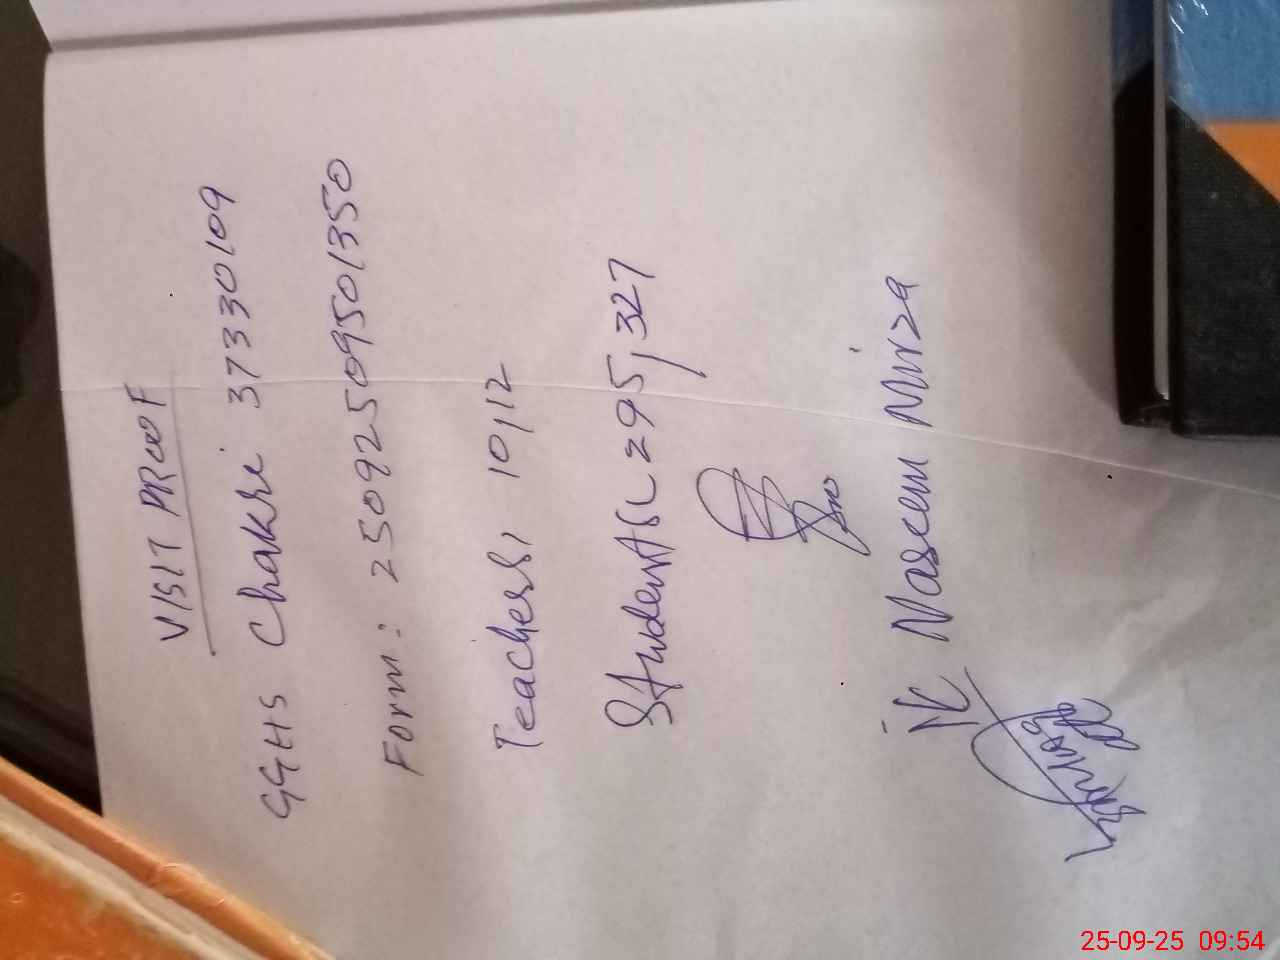 VISIT PROOF
GGHS Chakri 37330109
Form: 25092509501350
Teachers, 10,12
Students 295,327
Naseem Mirza
25-09-25 09:54